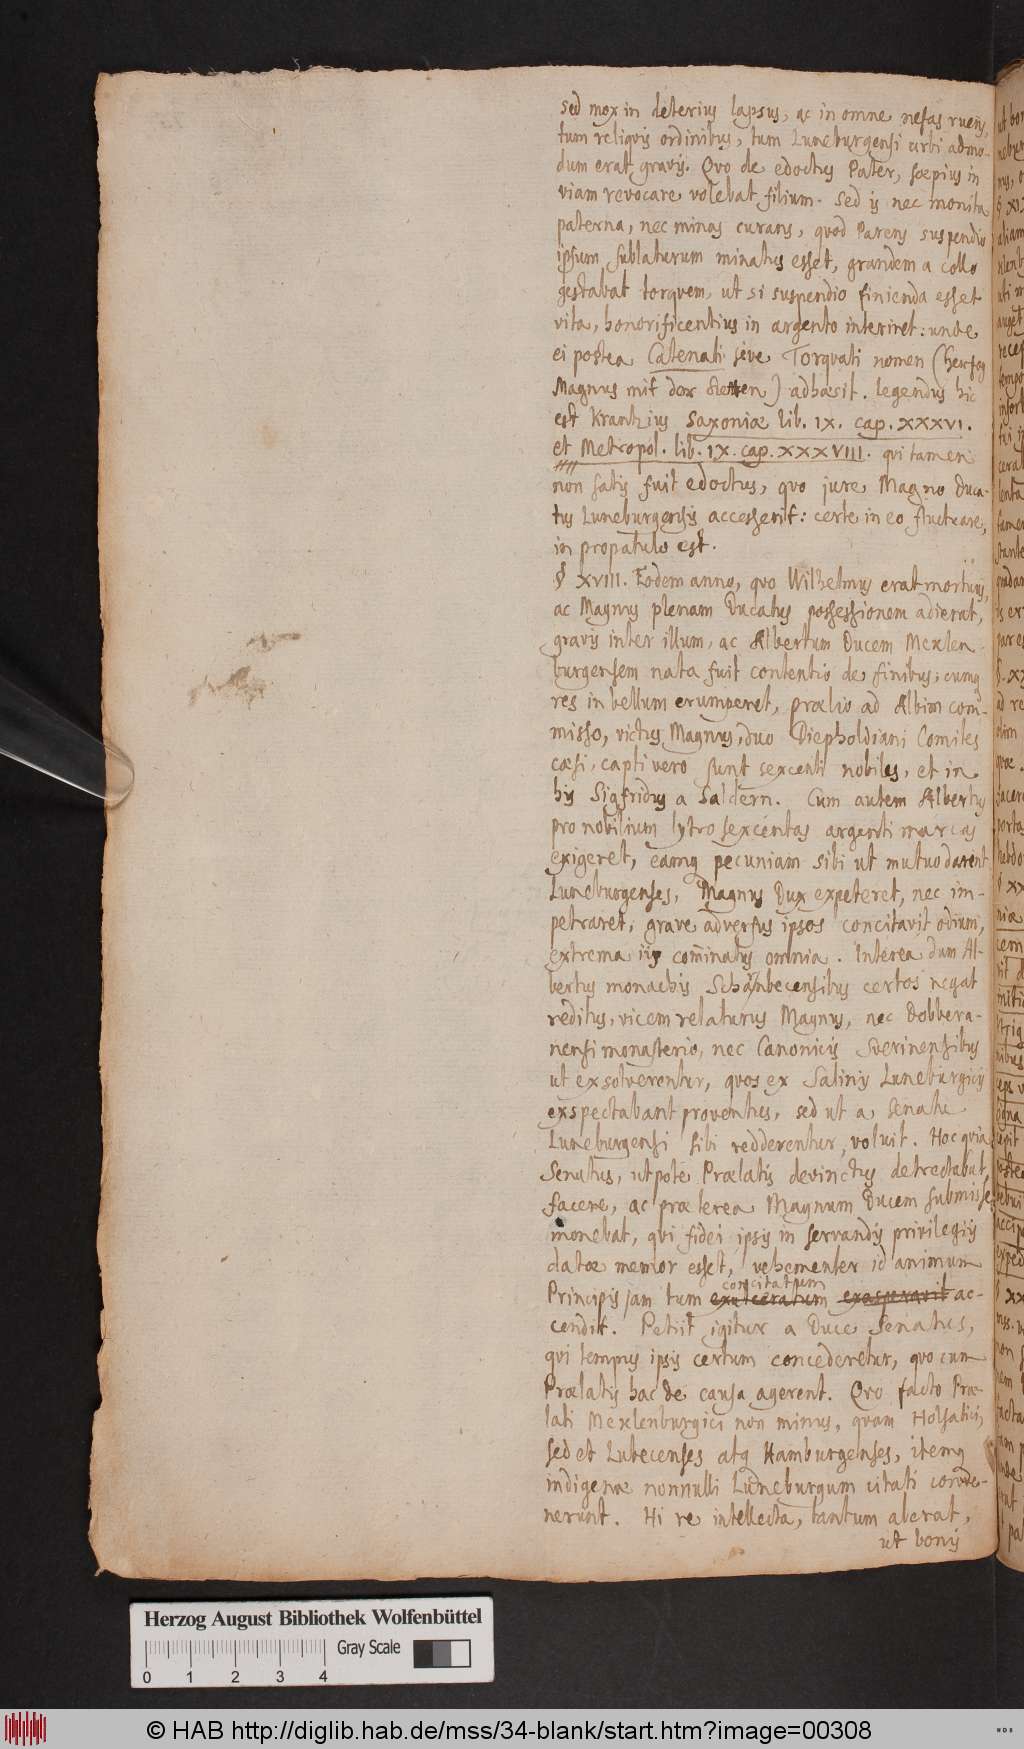 sed mox in deterius lapsus, ac in omne nefas ruens,
tum reliqvis ordinibus, tum Luneburgensi urbi admo-
dum erat gravis. Qvo de edoctus Pater, sœpius in
viam revocare volebat filium. Sed is nec monita
paterna, nec minas curans, qvod Parens suspendio
ipsum sublaturum minatus esset, grandem a collo
gestabat torqvem, ut si suspendio finienda esset
vita, honorificentius in argento interiret: unde
ei postea Catenati sive Torqvati nomen (Herzog
Magnus mit der Ketten) adhæsit. legendus hic
est Krantzius Saxoniæ lib. IX. cap. XXXVI.
et Metropol. lib. IX. cap. XXXVIII. qvi tamen
non satis fuit edoctus, qvo jure Magno Duca-
tus Luneburgensis accesserit: certe in eo fluctuare,
in propatulo est.
§ XVIII. Eodem anno, qvo Wilhelmus erat mortuus,
ac Magnus plenam Ducatus possessionem adierat,
gravis inter illum, ac Albertum Ducem Meklen-
burgensem nata fuit contentio de finibus; cumq
res in bellum erumperet, prælio ad Albim com-
misso, victus Magnus, duo Diepholdiani Comites
cæsi, capti vero sunt sexcenti nobiles, et in
his Sigfridus a Saldern. Cum autem Albertus
pro nobilium lytro sexcentas argenti marcas
exigeret, eamq pecuniam sibi ut mutuo darent
Luneburgenses, Magnus Dux expeteret, nec im-
petraret, grave adversus ipsos concitavit odium,
extrema iis com̄inatus omnia. Interea dum Al-
bertus monachis Schönbecensibus certos negat
reditus, vicem relaturus Magnus, nec Dobbera-
nensi monasterio, nec Canonicis Sverinensibus
ut exsolverentur, qvos ex Salinis Luneburgicis
exspectabant proventus, sed ut a Senatu
Luneburgensi sibi redderentur, voluit. Hoc qvia
Senatus, utpote Prælatis devinctus detrectabat
facere, ac præterea Magnum Ducem submisse
monebat, qvi fidei ipsis in servandis privilegiis
datæ memor esset, vehementer id animum
Principis jam tum exulceratum concitatum exasperavit ac-
cendit. Petiit igitur a Duce Senatus,
qvi tempus ipsis certum concederetur, qvo cum
Prælatis hac de causa agerent. Qvo facto Præ-
lati Meklenburgici non minus, qvam Holsatici,
sed et Lubecenses atq Hamburgenses, itemq
indigenæ nonnulli Luneburgum citati conve-
nerunt. Hi re intellecta, tantum aberat,
ut bonis
Herzog August Bibliothek Wolfenbüttel
Gray Scale
0 1 2 3 4
© HAB http://diglib.hab.de/mss/34-blank/start.htm?image=00308